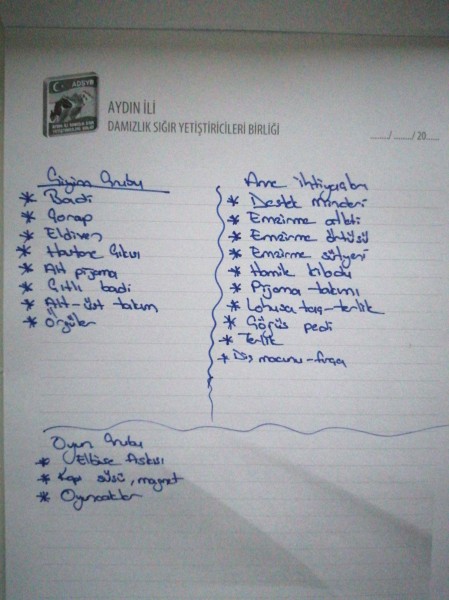 ADSYB
AYDIN İLİ
DAMIZLIK SIĞIR YETİŞTİRİCİLERİ BİRLİĞİ
__/__/20__
Giyim Grubu
* Badi
* Çorap
* Eldiven
* Hastane Çıkışı
* Alt pijama
* Çıtlı badi
* Alt-üst takım
* Örgüler
Anne ihtiyaçları
* Destek minderi
* Emzirme atleti
* Emzirme örtüsü
* Emzirme sütyeni
* Hamile külodu
* Pijama takımı
* Lohusa taç-terlik
* Göğüs pedi
* Terlik
* Diş macunu-fırça
Oyun Grubu
* Elbise Askısı
* Kapı süsü, magnet
* Oyuncaklar